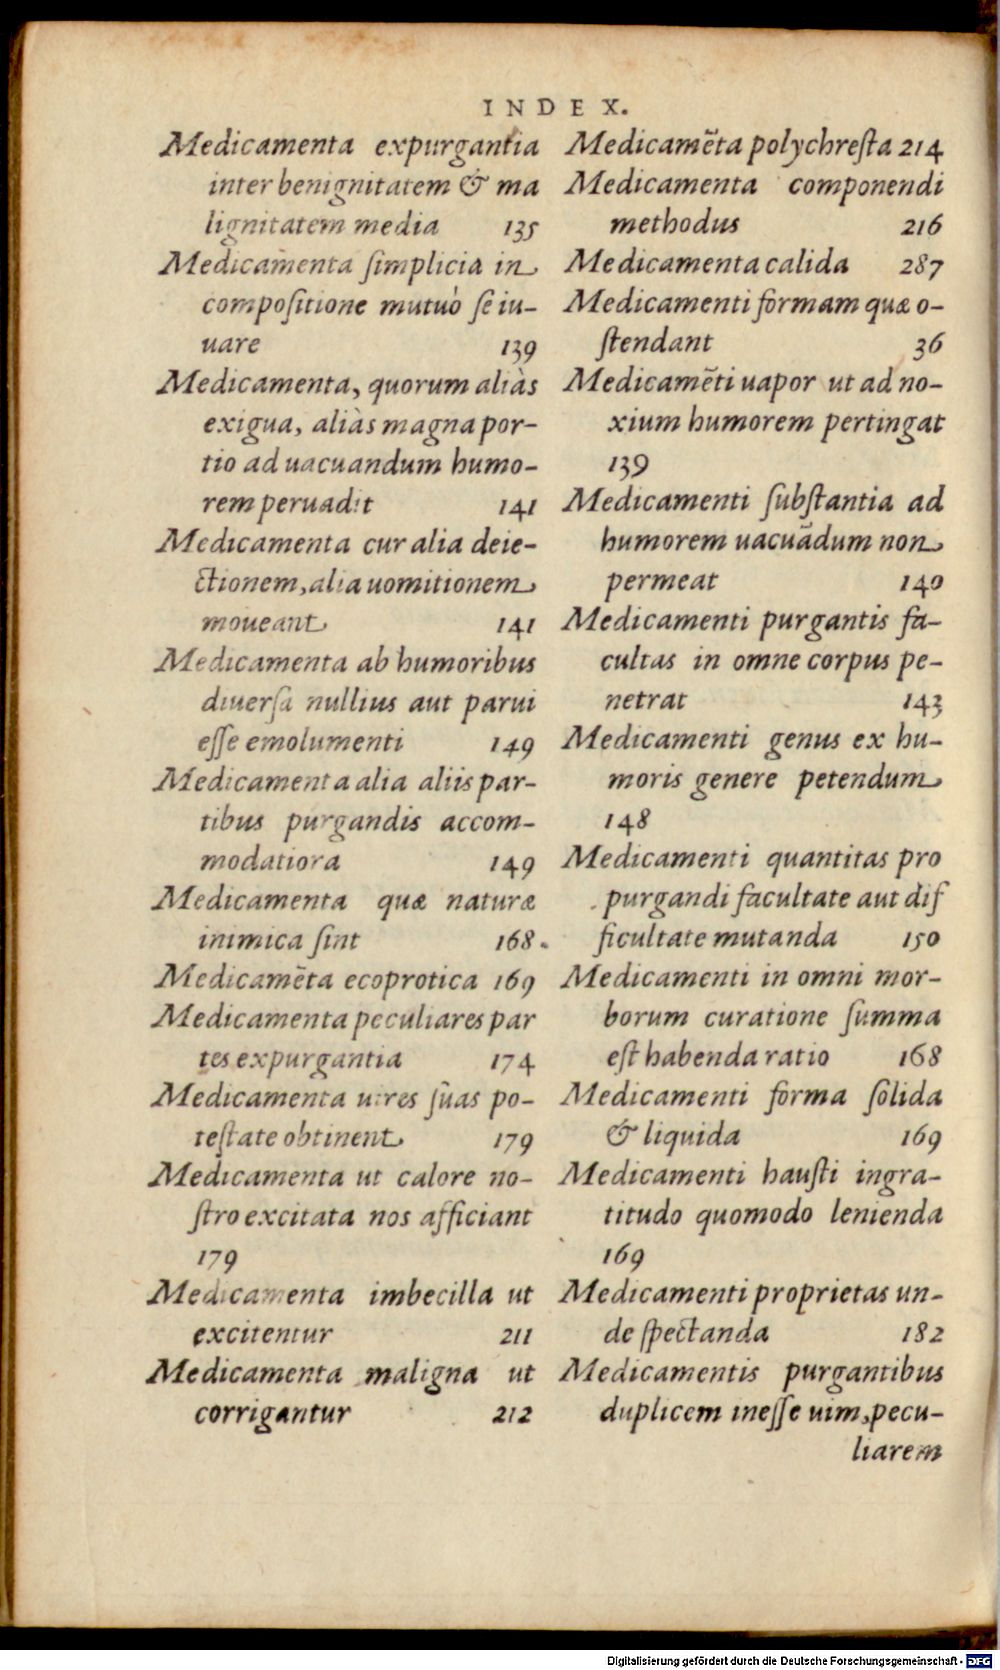 INDEX.
Medicamenta expurgantia
inter benignitatem & ma
lignitatem media 135
Medicamenta ſimplicia in
compoſitione mutuò ſe iu-
uare 139
Medicamenta, quorum aliàs
exigua, aliàs magna por-
tio ad uacuandum humo-
rem peruadit 141
Medicamenta cur alia deie-
ctionem, alia uomitionem
moueant 141
Medicamenta ab humoribus
diuerſa nullius aut parui
eſſe emolumenti 149
Medicamenta alia aliis par-
tibus purgandis accom-
modatiora 149
Medicamenta quæ naturæ
inimica ſint 168.
Medicamẽta ecoprotica 169
Medicamenta peculiares par
tes expurgantia 174
Medicamenta uires ſuas po-
teſtate obtinent 179
Medicamenta ut calore no-
ſtro excitata nos afficiant
179
Medicamenta imbecilla ut
excitentur 211
Medicamenta maligna ut
corrigantur 212
Medicamẽta polychreſta 214
Medicamenta componendi
methodus 216
Medicamenta calida 287
Medicamenti formam quæ o-
ſtendant 36
Medicamẽti uapor ut ad no-
xium humorem pertingat
139
Medicamenti ſubſtantia ad
humorem uacuãdum non
permeat 140
Medicamenti purgantis fa-
cultas in omne corpus pe-
netrat 143
Medicamenti genus ex hu-
moris genere petendum
148
Medicamenti quantitas pro
purgandi facultate aut dif
ficultate mutanda 150
Medicamenti in omni mor-
borum curatione ſumma
eſt habenda ratio 168
Medicamenti forma ſolida
& liquida 169
Medicamenti hauſti ingra-
titudo quomodo lenienda
169
Medicamenti proprietas un-
de ſpectanda 182
Medicamentis purgantibus
duplicem ineſſe uim, pecu-
liarem
Digitalisierung gefördert durch die Deutsche Forschungsgemeinschaft - DFG